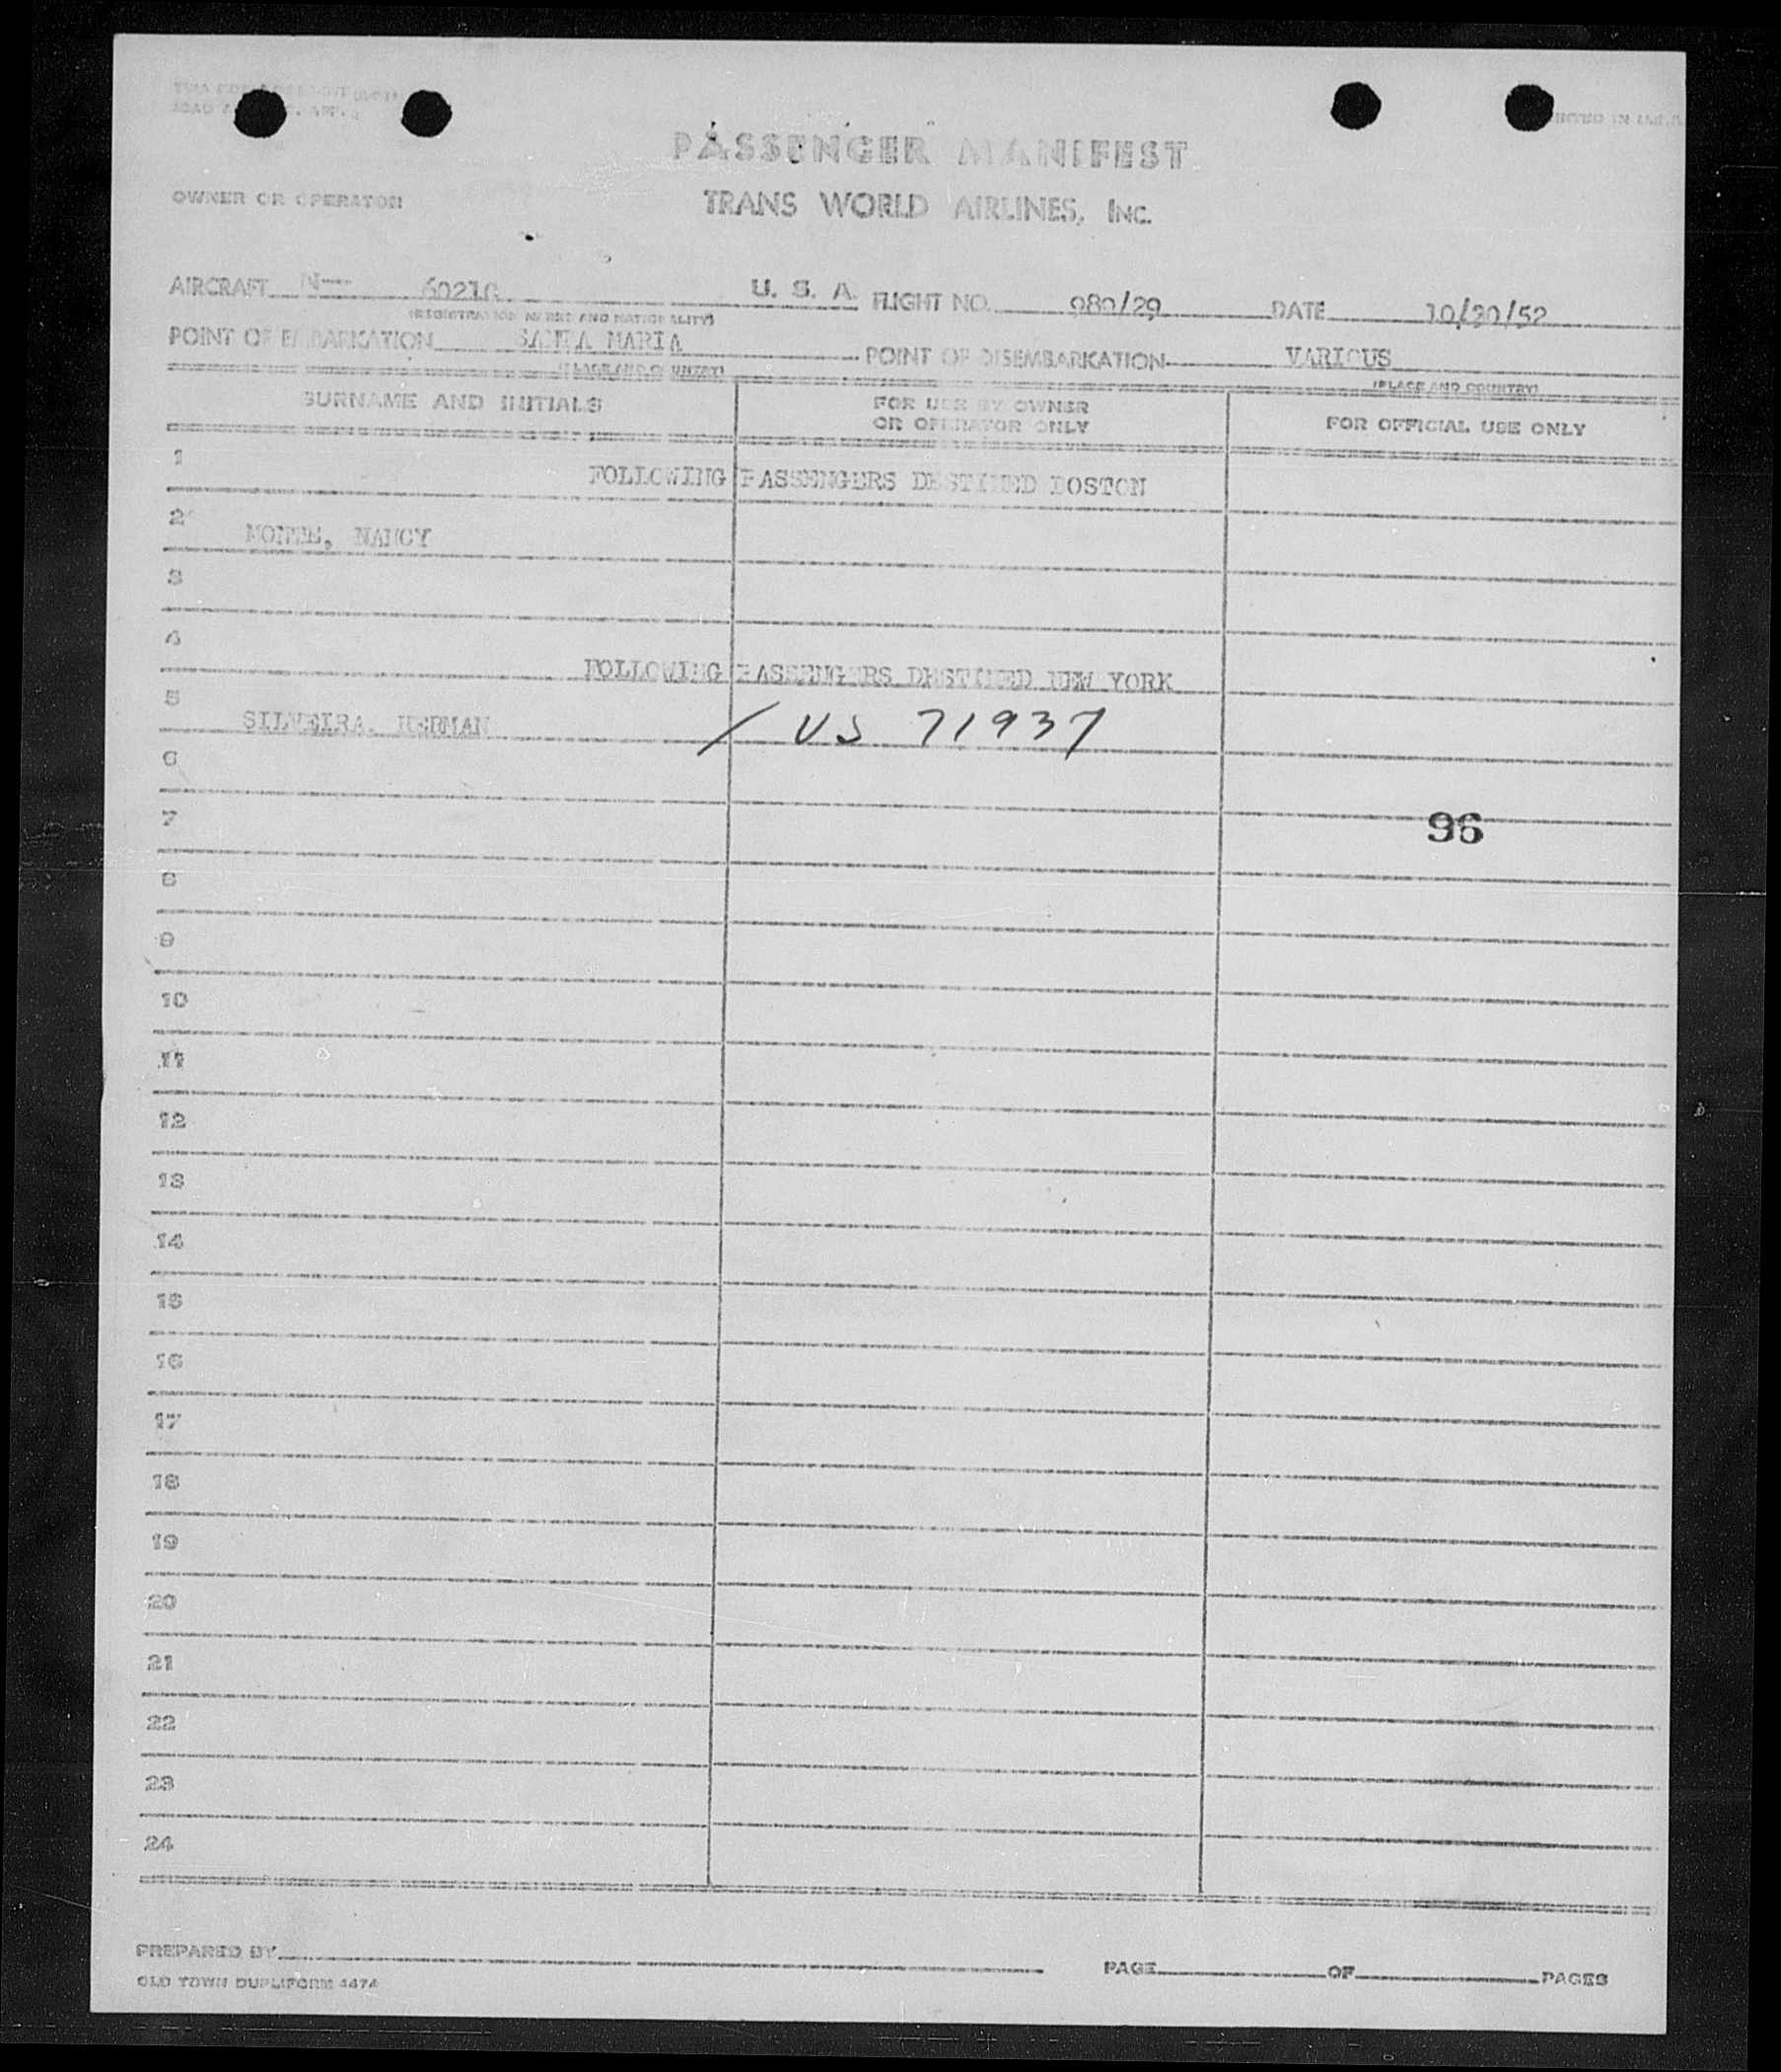 PASSENGER MANIFEST
OWNER OR OPERATOR TRANS WORLD AIRLINES, INC.
AIRCRAFT N— U. S. A. FLIGHT NO. 980/29 DATE
(REGISTRATION MARKS AND NATIONALITY)
POINT OF EMBARKATION SANTA MARIA POINT OF DISEMBARKATION VARIOUS
(PLACE AND COUNTRY) (PLACE AND COUNTRY)
SURNAME AND INITIALS FOR USE BY OWNER OR OPERATOR ONLY FOR OFFICIAL USE ONLY
1 FOLLOWING PASSENGERS DESTINED BOSTON
2 NANCY
3
4 FOLLOWING PASSENGERS DESTINED NEW YORK
5 SILVEIRA, HERMAN / US 71937
6
7 96
8
9
10
11
12
13
14
15
16
17
18
19
20
21
22
23
24
PREPARED BY PAGE OF PAGES
OLD TOWN DUPLIFORM 4474